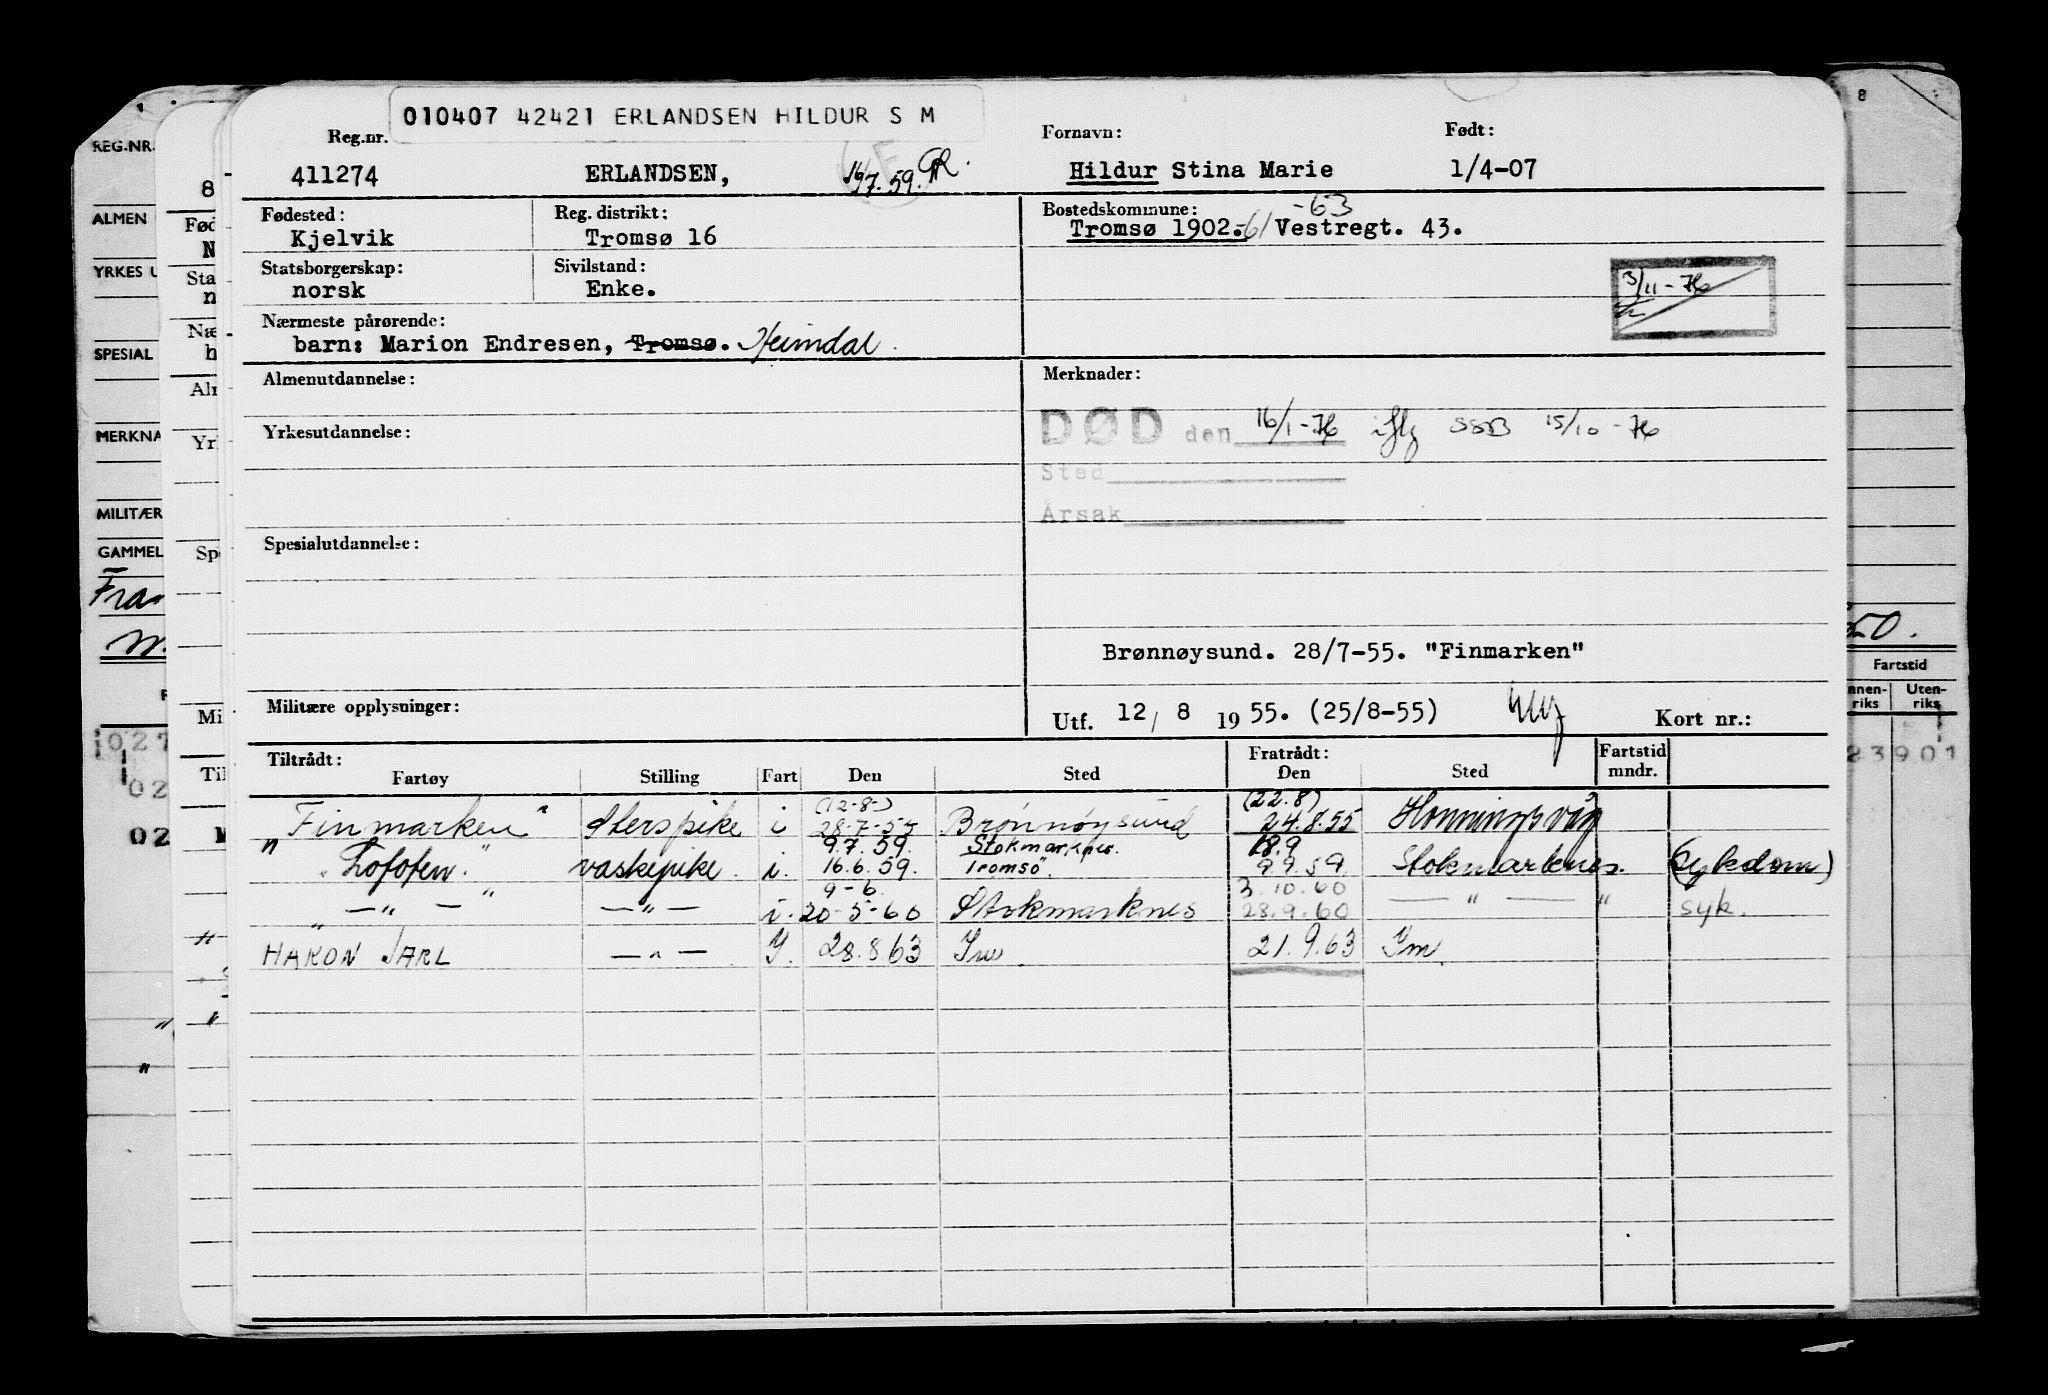 010407 42421 ERLANDSEN HILDUR S M
Reg.nr. Fornavn: Født:
411274 ERLANDSEN, 16/7.59. Hildur Stina Marie 1/4-07
Fødested: Reg. distrikt: Bostedskommune: -63
Kjelvik Tromsø 16 Tromsø 1902.-61 Vestregt. 43.
Statsborgerskap: Sivilstand:
norsk Enke. 3/11-76
Nærmeste pårørende:
barn: Marion Endresen, Tromsø. Heimdal.
Almenutdannelse: Merknader:
Yrkesutdannelse: DØD den 16/1-76 iflg SSB 15/10-76
Sted
Årsak
Spesialutdannelse:
Brønnøysund. 28/7-55. "Finmarken"
Militære opplysninger: Utf. 12/ 8 1955. (25/8-55) Kort nr.:
Tiltrådt: Fratrådt: Fartstid
Fartøy Stilling Fart Den Sted Den Sted mndr.
(12-8-) (22.8)
"Finmarken" Aterspike i 28-7-55 Brønnøysund 24.8.55 Honningsvåg
9.7.59. Stokmarknes. 18.9
"Lofoten." vaskepike. i. 16.6.59. Tromsø". 9.9.59. Stokmarknes. (Sykdom)
9-6. 3.10.60
" — " — " — " — i. 20-5-60 Stokmarknes 28.9.60 — " — " syk.
HAKON JARL — " — I. 28.8.63 21.9.63
REG.NR.
ALMEN
YRKES U
SPESIAL
MERKNA
MILITÆR
GAMMEL
Fra
8
Fød
N
Sta
n
Næ
h
Alr
Yrl
Spe
Mi
Til
027
02
02
8
50.
Fartstid
nnen- Uten-
riks riks
23901